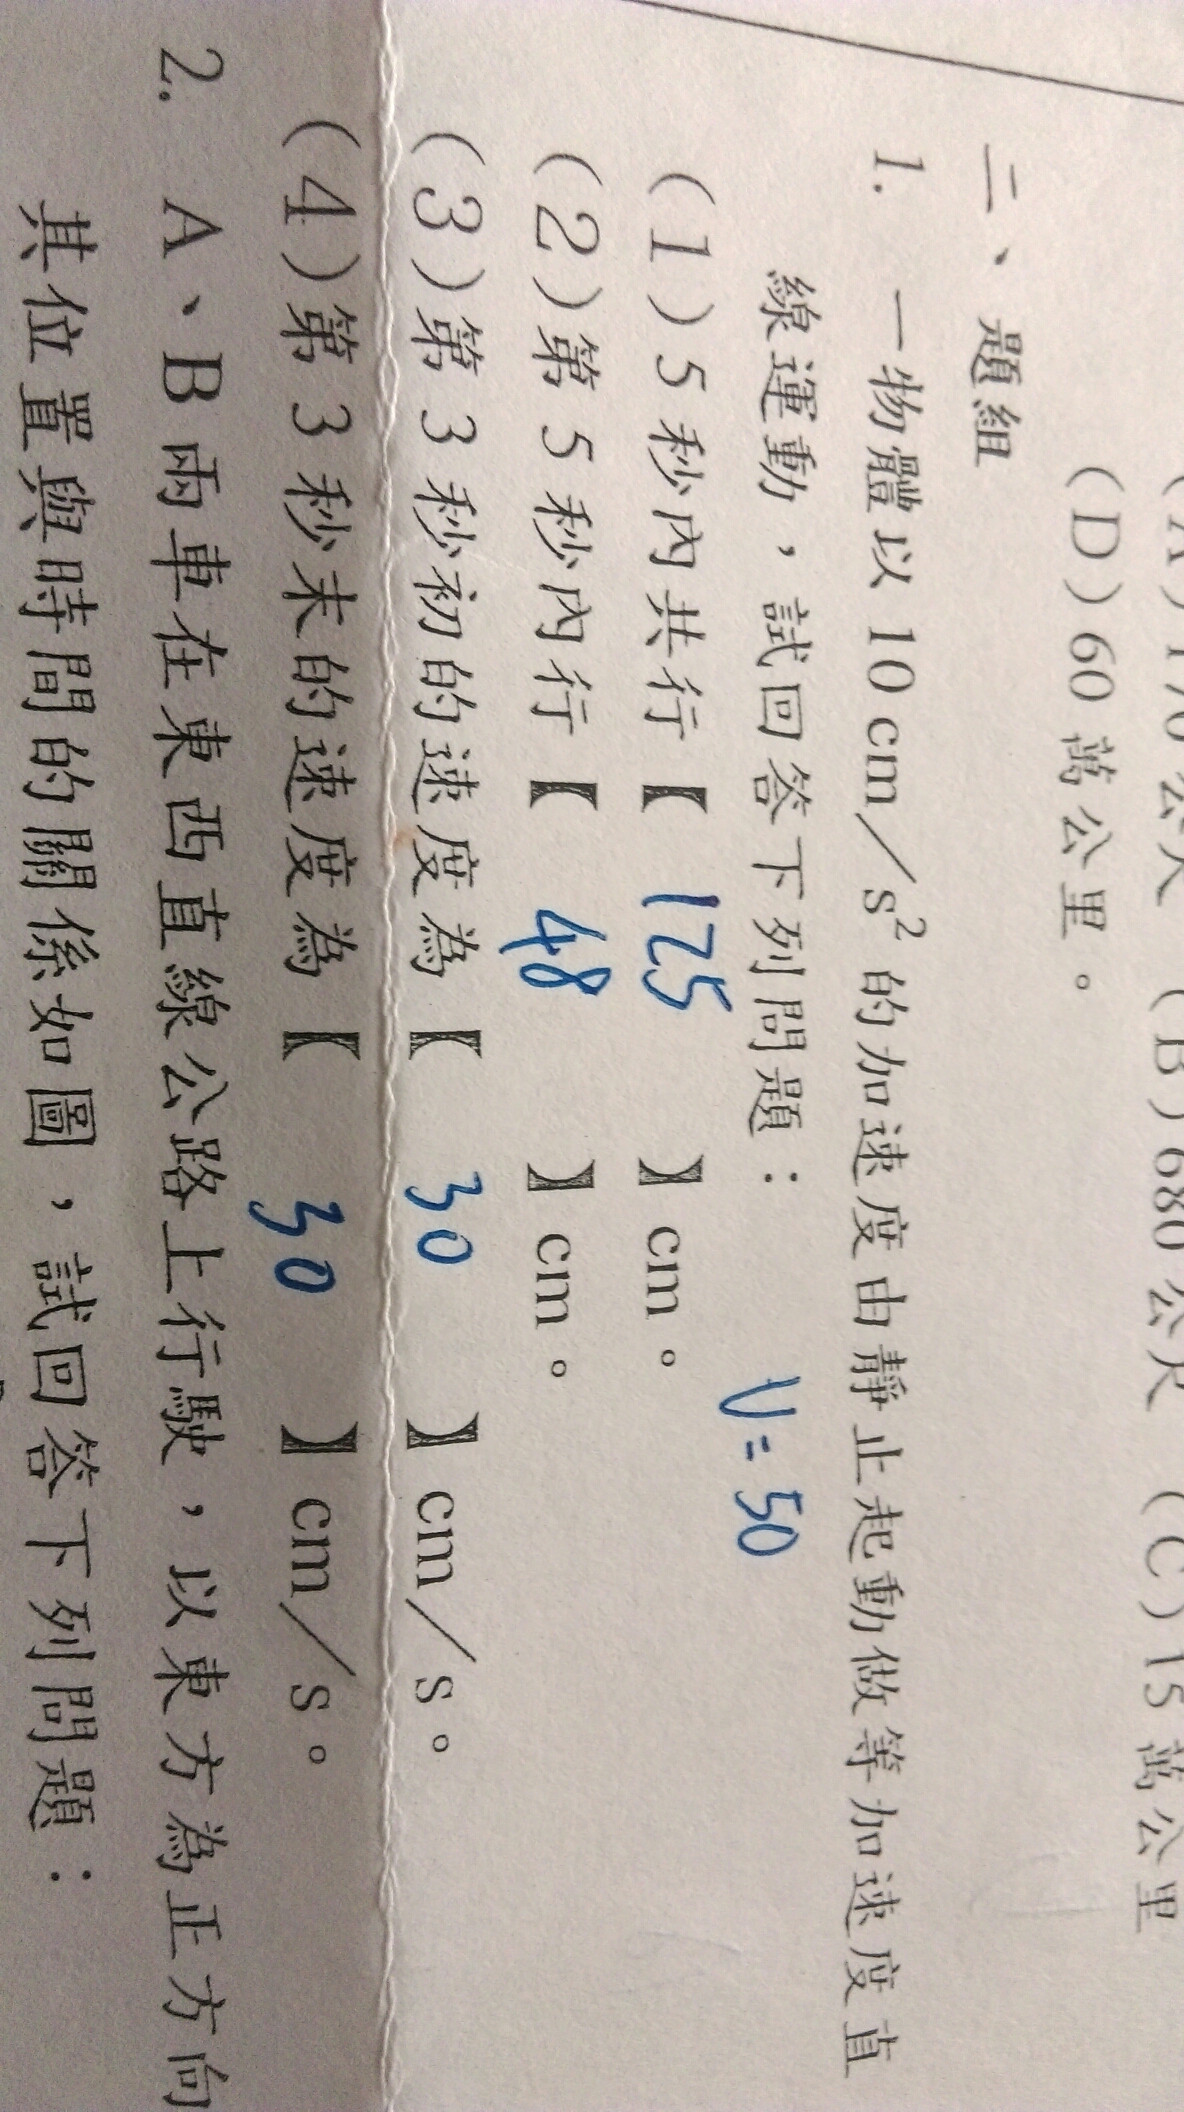 (A)170公尺 (B)680公尺 (C)15萬公里
(D)60萬公里。
二、題組
1. 一物體以10 cm/s² 的加速度由靜止起動做等加速度直
線運動,試回答下列問題:
V=50
(1)5秒內共行【 125 】cm。
(2)第5秒內行【 48 】cm。
(3)第3秒初的速度為【 30 】cm/s。
(4)第3秒末的速度為【 30 】cm/s。
2. A、B兩車在東西直線公路上行駛,以東方為正方向
其位置與時間的關係如圖,試回答下列問題: